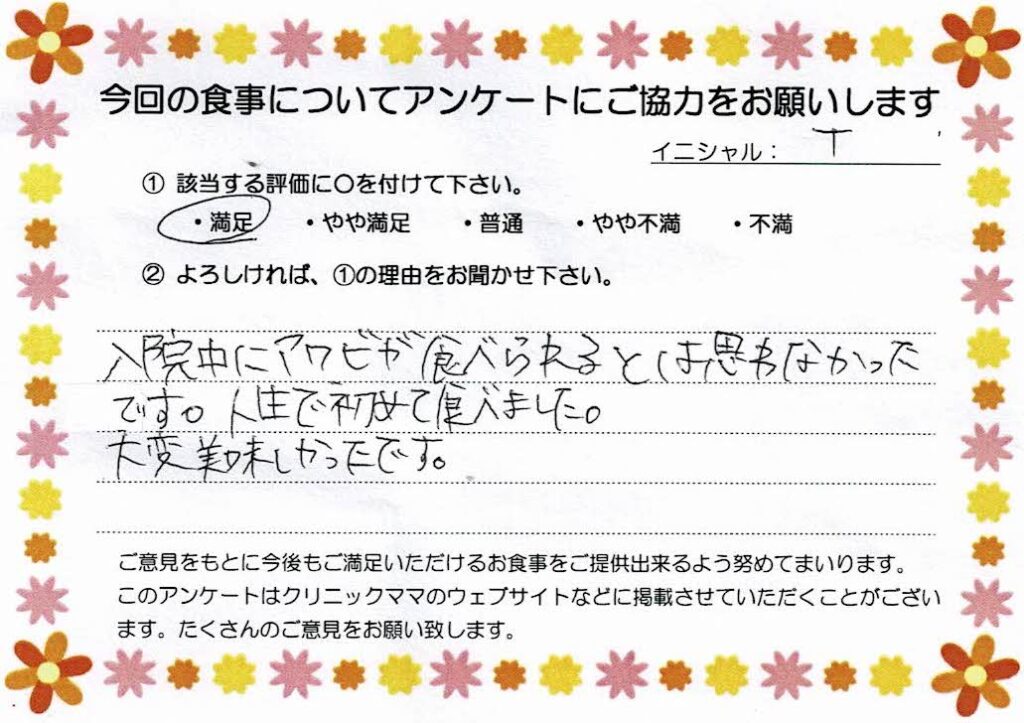 今回の食事についてアンケートにご協力をお願いします
イニシャル： T
① 該当する評価に〇を付けて下さい。
・満足 ・やや満足 ・普通 ・やや不満 ・不満
② よろしければ、①の理由をお聞かせ下さい。
入院中にアワビが食べられるとは思わなかった
です。人生で初めて食べました。
大変美味しかったです。
ご意見をもとに今後もご満足いただけるお食事をご提供出来るよう努めてまいります。
このアンケートはクリニックママのウェブサイトなどに掲載させていただくことがござい
ます。たくさんのご意見をお願い致します。